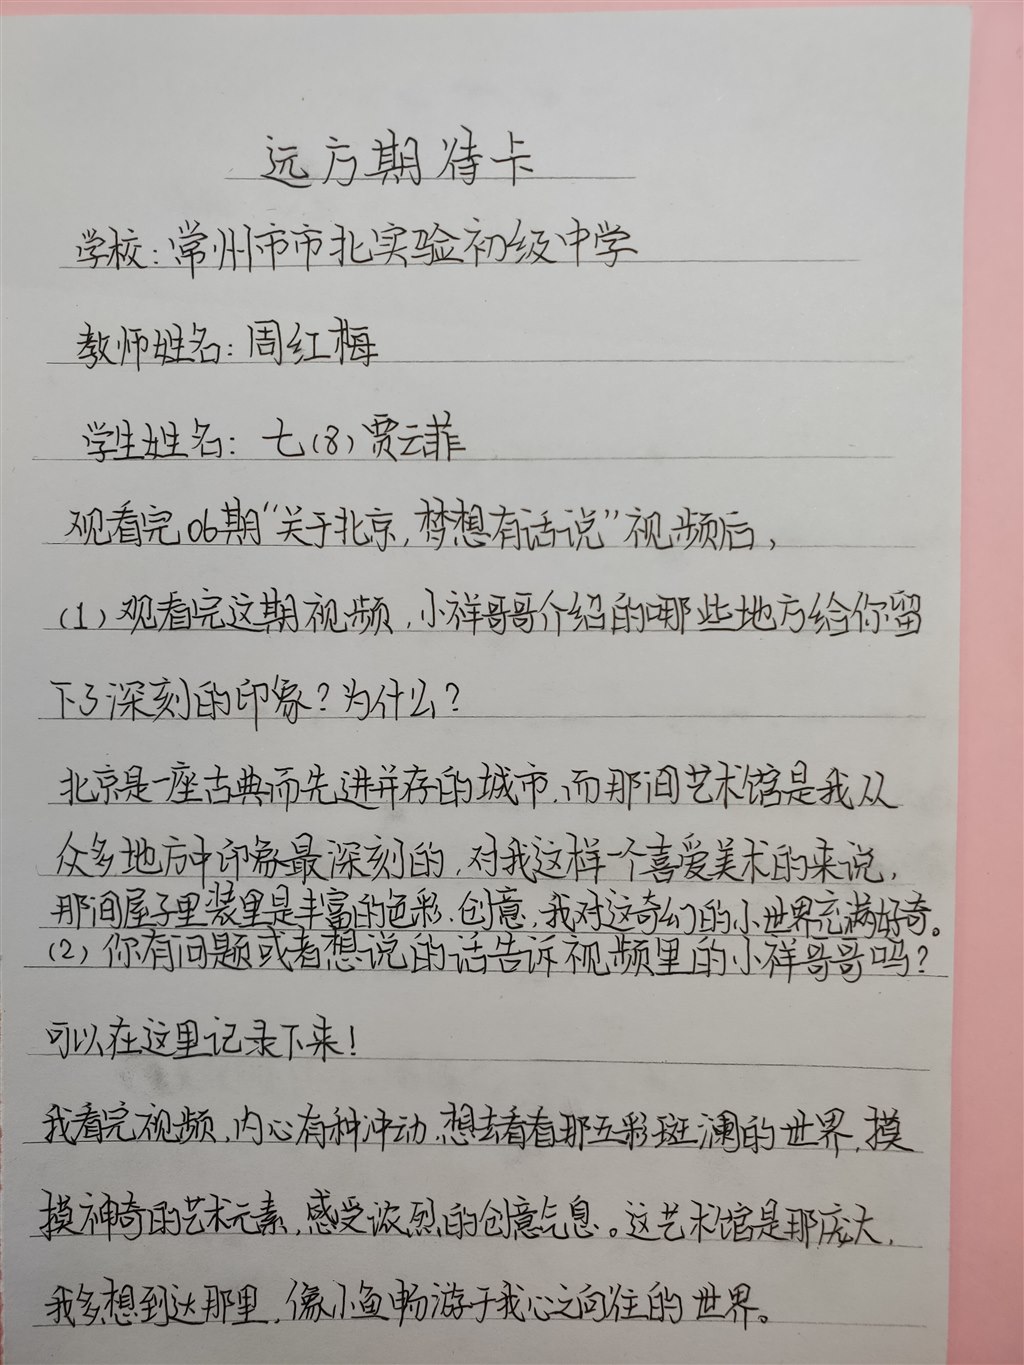 远方期待卡
学校:常州市市北实验初级中学
教师姓名:周红梅
学生姓名: 七(8)贾云菲
观看完06期“关于北京,梦想有话说”视频后,
(1)观看完这期视频,小祥哥哥介绍的哪些地方给你留
下了深刻的印象?为什么?
北京是一座古典而先进并存的城市,而那间艺术馆是我从
众多地方中印象最深刻的,对我这样一个喜爱美术的来说,
那间屋子里装里是丰富的色彩,创意,我对这奇幻的小世界充满好奇。
(2)你有问题或者想说的话告诉视频里的小祥哥哥吗?
可以在这里记录下来!
我看完视频,内心有种冲动,想去看看那五彩斑澜的世界,摸
摸神奇的艺术元素,感受浓烈的创意气息。这艺术馆是那庞大,
我多想到达那里,像小鱼畅游于我心之向往的世界。